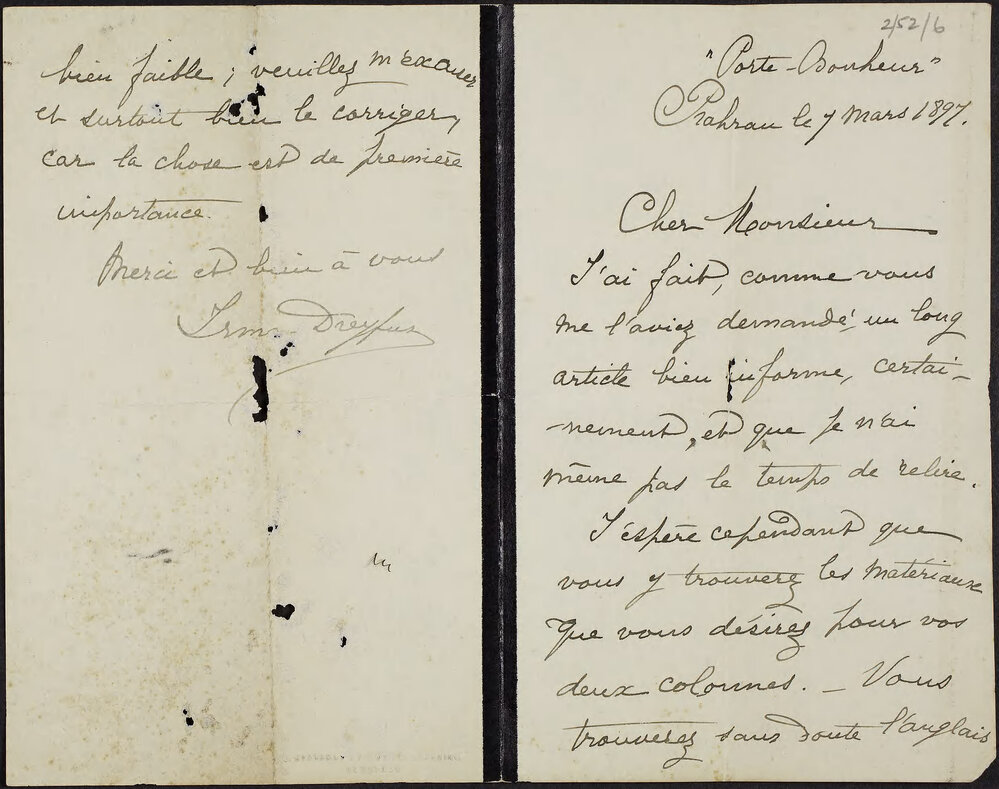 2/52/6
"Porte-Bonheur"
Prahran le 7 Mars 1897.
Cher Monsieur
J'ai fait, comme vous
me l'aviez demandé un long
article bien informe, certai-
-nement, et que je n'ai
même pas le temps de relire.
J'éspère cependant que
vous y trouverez les matériaux
que vous désirez pour vos
deux colonnes. _ Vous
trouverez sans doute l'anglais
bien faible ; veuillez m'excuser
et surtout bien le corriger,
car la chose est de première
importance.
Merci et bien à vous
Irma Dreyfus